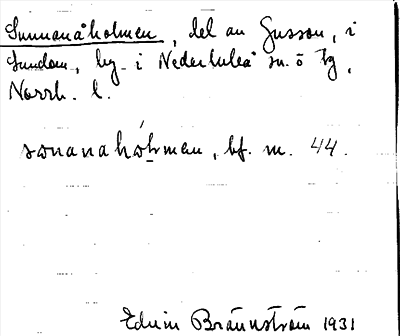 Sunnanåholmen, del av Gusson, i
Sundom, by i Nederluleå sn. o tg,
Norrb. l.
sɷnanahóḷman, bf. m. 44.
Edvin Brännström 1931